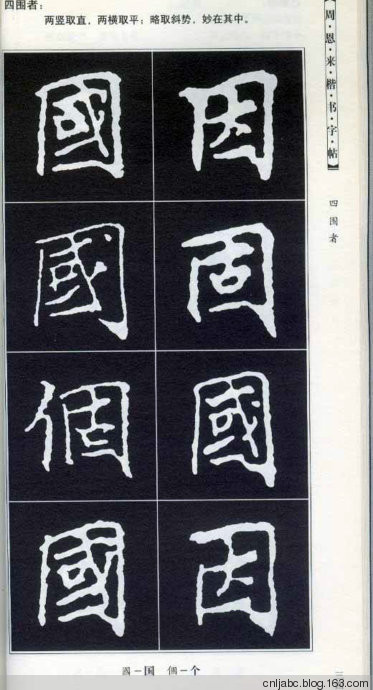 四围者：
两竖取直，两横取平；略取斜势，妙在其中。
【周·恩·来·楷·书·字·帖】
四围者
國 因
國 固
個 國
國 因
國－国 個－个
cnljabc.blog.163.com